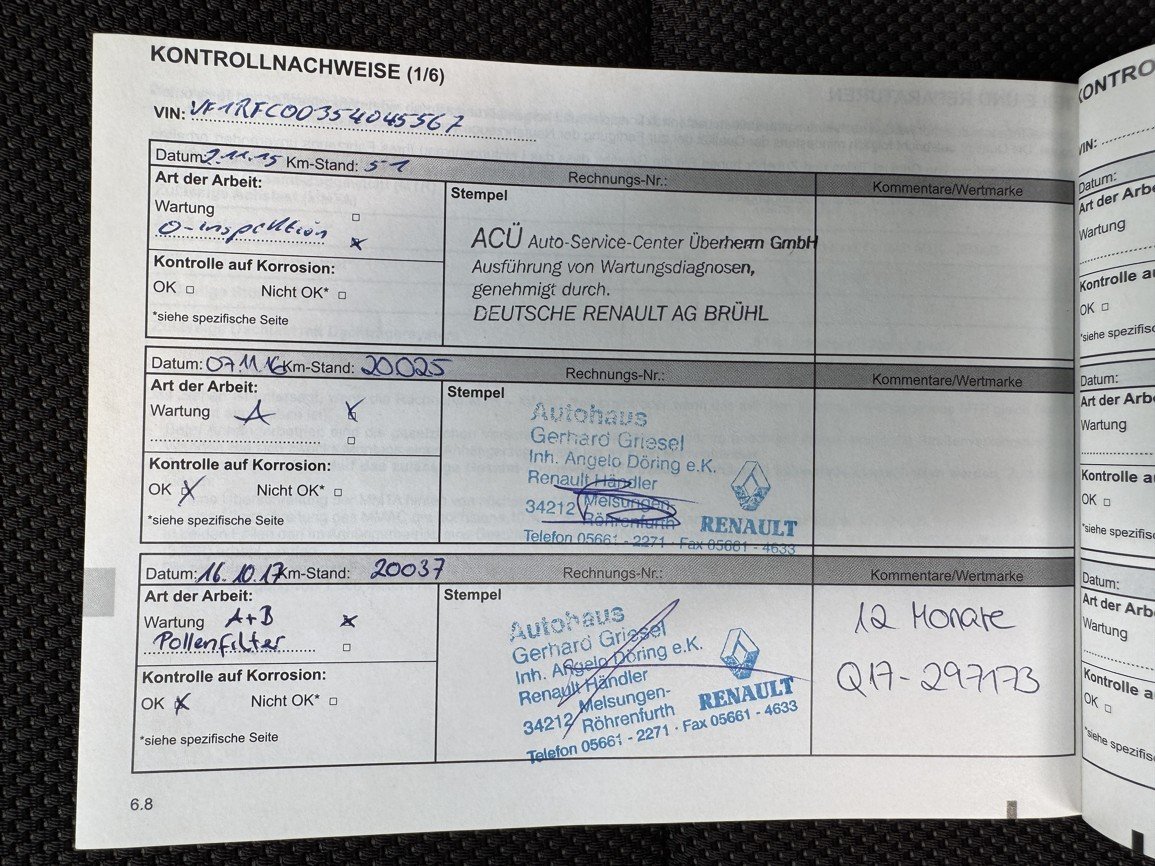 KONTROLLNACHWEISE (1/6)
VIN: VF1RFC00354045567
Datum: 2.11.15 Km-Stand: 51 Rechnungs-Nr.: Kommentare/Wertmarke
Art der Arbeit:
Stempel
Wartung
0-inspektion
Kontrolle auf Korrosion:
OK Nicht OK*
*siehe spezifische Seite
ACÜ Auto-Service-Center Überherrn GmbH
Ausführung von Wartungsdiagnosen,
genehmigt durch.
DEUTSCHE RENAULT AG BRÜHL
Datum: 07.11.16 Km-Stand: 20025 Rechnungs-Nr.: Kommentare/Wertmarke
Art der Arbeit:
Stempel
Wartung A
Kontrolle auf Korrosion:
OK Nicht OK*
*siehe spezifische Seite
Autohaus
Gerhard Griesel
Inh. Angelo Döring e.K.
Renault Händler
34212 Melsungen-
Röhrenfurth
RENAULT
Telefon 05661 - 2271 · Fax 05661 - 4633
Datum: 16.10.17 Km-Stand: 20037 Rechnungs-Nr.: Kommentare/Wertmarke
Art der Arbeit:
Stempel
Wartung A+B
Pollenfilter
Kontrolle auf Korrosion:
OK Nicht OK*
*siehe spezifische Seite
Autohaus
Gerhard Griesel
Inh. Angelo Döring e.K.
Renault Händler
34212 Melsungen-
Röhrenfurth
RENAULT
Telefon 05661 - 2271 · Fax 05661 - 4633
12 Monate
Q17-297173
6.8
KONTRO
VIN:
Datum:
Art der Arbe
Wartung
Kontrolle au
OK
*siehe spezifisc
Datum:
Art der Arb
Wartung
Kontrolle a
OK
*siehe spezifis
Datum:
Art der Arb
Wartung
Kontrolle a
OK
*siehe spezifis